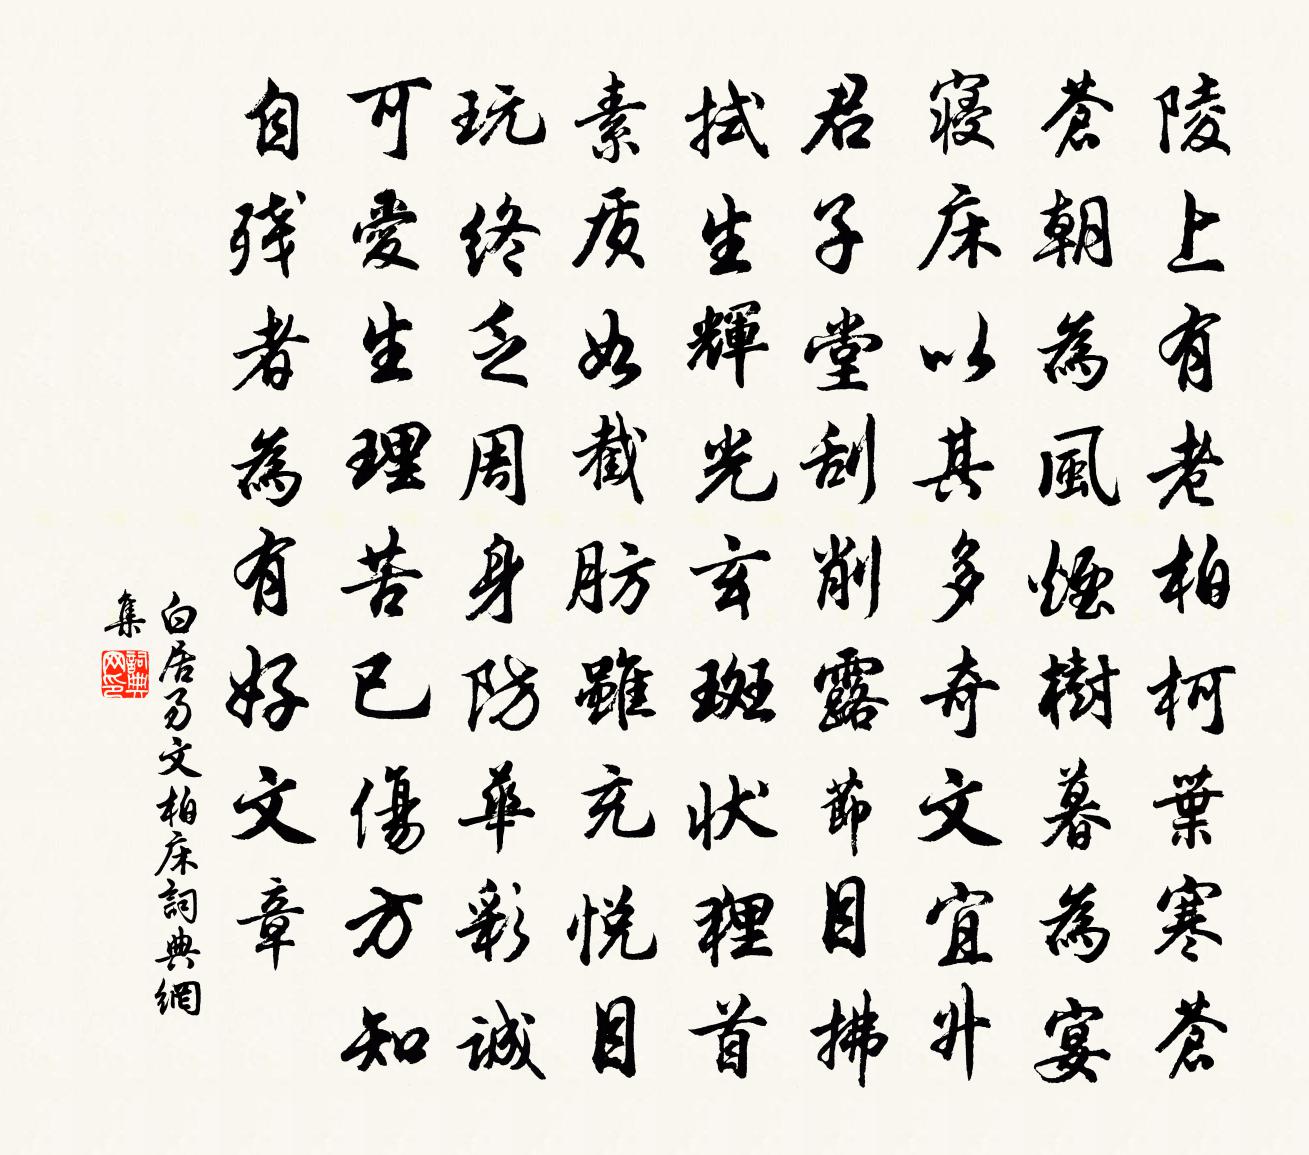 陵上有老柏柯葉寒蒼
蒼朝為風煙樹暮為宴
寝床以其多奇文宜升
君子堂刮削露節目拂
拭生輝光玄斑状狸首
素质如截肪雖充悦目
玩終乏周身防華彩誠
可愛生理苦已傷方知
自残者為有好文章
白居易文柏床詞典網
集
詞典
网印